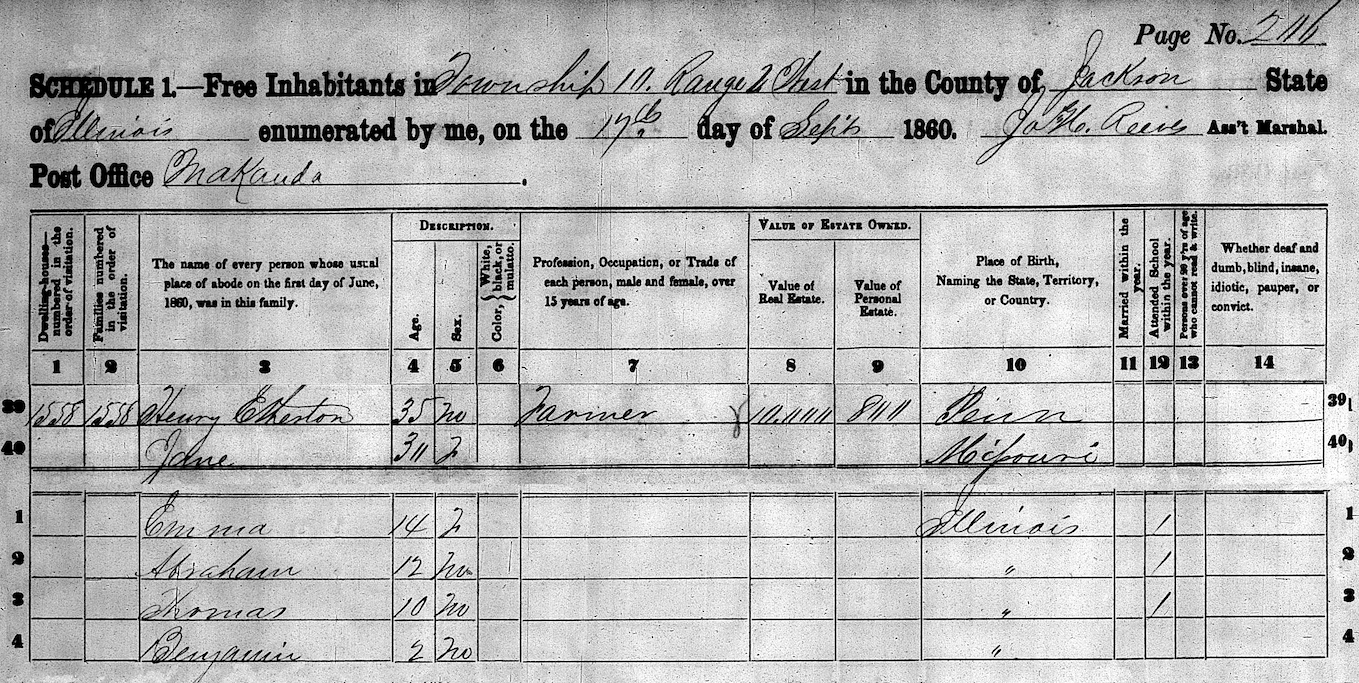 Page No. 206
SCHEDULE 1.—Free Inhabitants in Township 10. Range 2 West in the County of Jackson State
of Illinois enumerated by me, on the 17th day of Sept 1860. Jo H. Reeves Ass't Marshal.
Post Office Makanda.
Dwelling-houses—numbered in the order of visitation.
Families numbered in the order of visitation.
The name of every person whose usual place of abode on the first day of June, 1860, was in this family.
DESCRIPTION.
Age.
Sex.
Color, { White, black, or mulatto.
Profession, Occupation, or Trade of each person, male and female, over 15 years of age.
VALUE OF ESTATE OWNED.
Value of Real Estate.
Value of Personal Estate.
Place of Birth, Naming the State, Territory, or Country.
Married within the year.
Attended School within the year.
Persons over 20 y'rs of age who cannot read & write.
Whether deaf and dumb, blind, insane, idiotic, pauper, or convict.
1 2 3 4 5 6 7 8 9 10 11 12 13 14
39 1558 1558 Henry Etherton 35 m Farmer 10.000 800 Penn 39
40 Jane 30 f Missouri 40
1 Emma 14 f Illinois / 1
2 Abraham 12 m " / 2
3 Thomas 10 m " / 3
4 Benjamin 2 m " 4